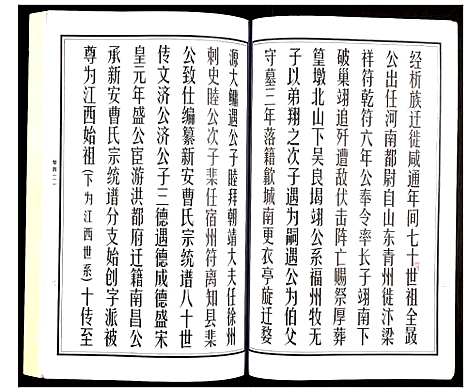 经析族迁徙咸通年间七十世祖全畋
公出任河南都尉自山东青州徙汴梁
祥符乾符六年公奉令率长子翊南下
破巢翊追歼遭敌伏击阵亡赐祭厚葬
篁墩北山下吴良堨翊公系福州牧无
子以弟翔之次子遇为嗣遇公为伯父
守墓三年落籍歙城南更衣亭旋迁婺
源大鳙遇公子睦拜朝靖大夫任徐州
刺史睦公次子棐任宿州符离知县棐
公致仕编纂新安曹氏宗统谱八十世
传文济公济公子三德遇德成德盛宋
皇元年盛公臣游洪都府迁籍南昌公
承新安曹氏宗统谱分支始创字派被
尊为江西始祖(下为江西世系)十传至